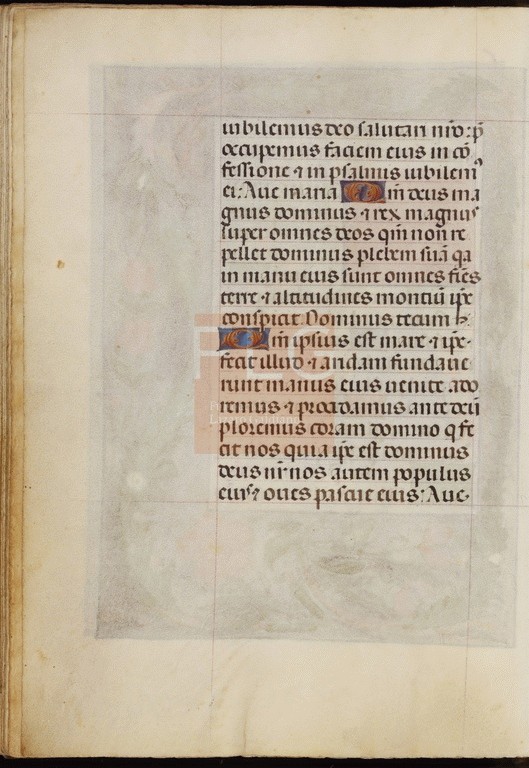 iubilemus deo salutari nr̄o: p̄
occupemus faciem eius in cō
fessione ⁊ in psalmis iubilem⁹
ei: Aue maria Q m̄ deus ma
gnus dominus ⁊ rex magnus
super omnes deos qm̄ non re
pellet dominus plebem suā qa
in manu eius sunt omnes fies
terre ⁊ altitudines montiū ip̄e
conspicit. Dominus tecum
Q m̄ ipsius est mare ⁊ ip̄e
fecit illud ⁊ aridam fundaue
runt manus eius uenite ado
remus ⁊ procidamus ante deū
ploremus coram domino q fe
cit nos quia ip̄e est dominus
deus nr̄ nos autem populus
eius ⁊ oues pascue eius: Aue